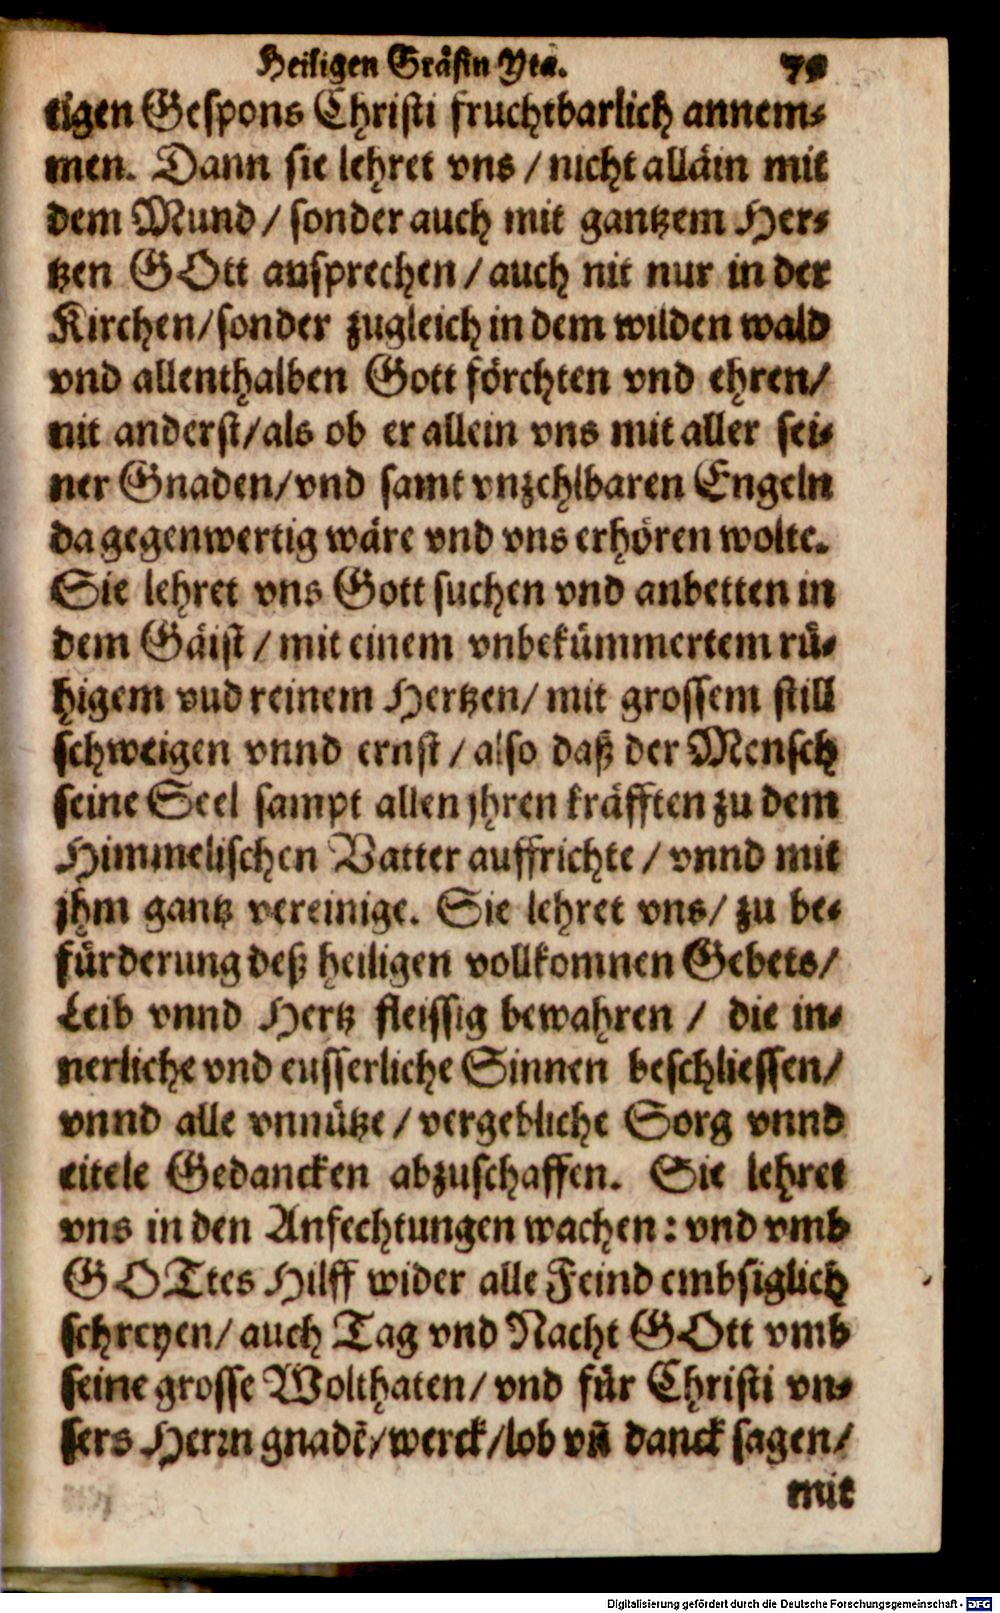 Heiligen Gräfin Yta. 79
tigen Gespons Christi fruchtbarlich annem-
men. Dann sie lehret vns / nicht alläin mit
dem Mund / sonder auch mit gantzem Her-
tzen GOtt ansprechen / auch nit nur in der
Kirchen / sonder zugleich in dem wilden wald
vnd allenthalben Gott förchten vnd ehren /
nit anderst / als ob er allein vns mit aller sei-
ner Gnaden / vnd samt vnzehlbaren Engeln
da gegenwertig wäre vnd vns erhören wolte.
Sie lehret vns Gott suchen vnd anbetten in
dem Gäist / mit einem vnbekümmertem rü-
higem vnd reinem Hertzen / mit grossem still
schweigen vnnd ernst / also daß der Mensch
seine Seel sampt allen jhren kräfften zu dem
Himmelischen Vatter auffrichte / vnnd mit
jhm gantz vereinige. Sie lehret vns / zu be-
fürderung deß heiligen vollkomnen Gebets /
Leib vnnd Hertz fleissig bewahren / die in-
nerliche vnd eusserliche Sinnen beschliessen /
vnnd alle vnnütze / vergebliche Sorg vnnd
eitele Gedancken abzuschaffen. Sie lehret
vns in den Anfechtungen wachen: vnd vmb
GOTtes Hilff wider alle Feind embsiglich
schreyen / auch Tag vnd Nacht GOtt vmb
seine grosse Wolthaten / vnd für Christi vn-
sers Herrn gnadē / werck / lob vñ danck sagen /
mit
Digitalisierung gefördert durch die Deutsche Forschungsgemeinschaft - DFG